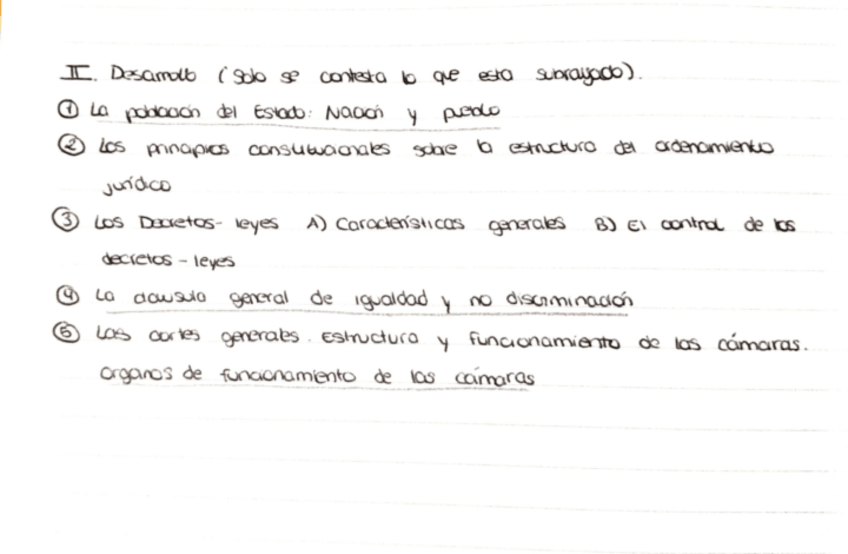 II. Desarrollo (Solo se contesta lo que esta subrayado).
① La población del Estado: Nación y pueblo
② Los principios constitucionales sobre la estructura del ordenamiento
jurídico
③ Los Decretos-leyes A) Características generales B) El control de los
decretos-leyes
④ La clausula general de igualdad y no discriminación
⑤ Las cortes generales. Estructura y funcionamiento de las cámaras.
Organos de funcionamiento de las cámaras